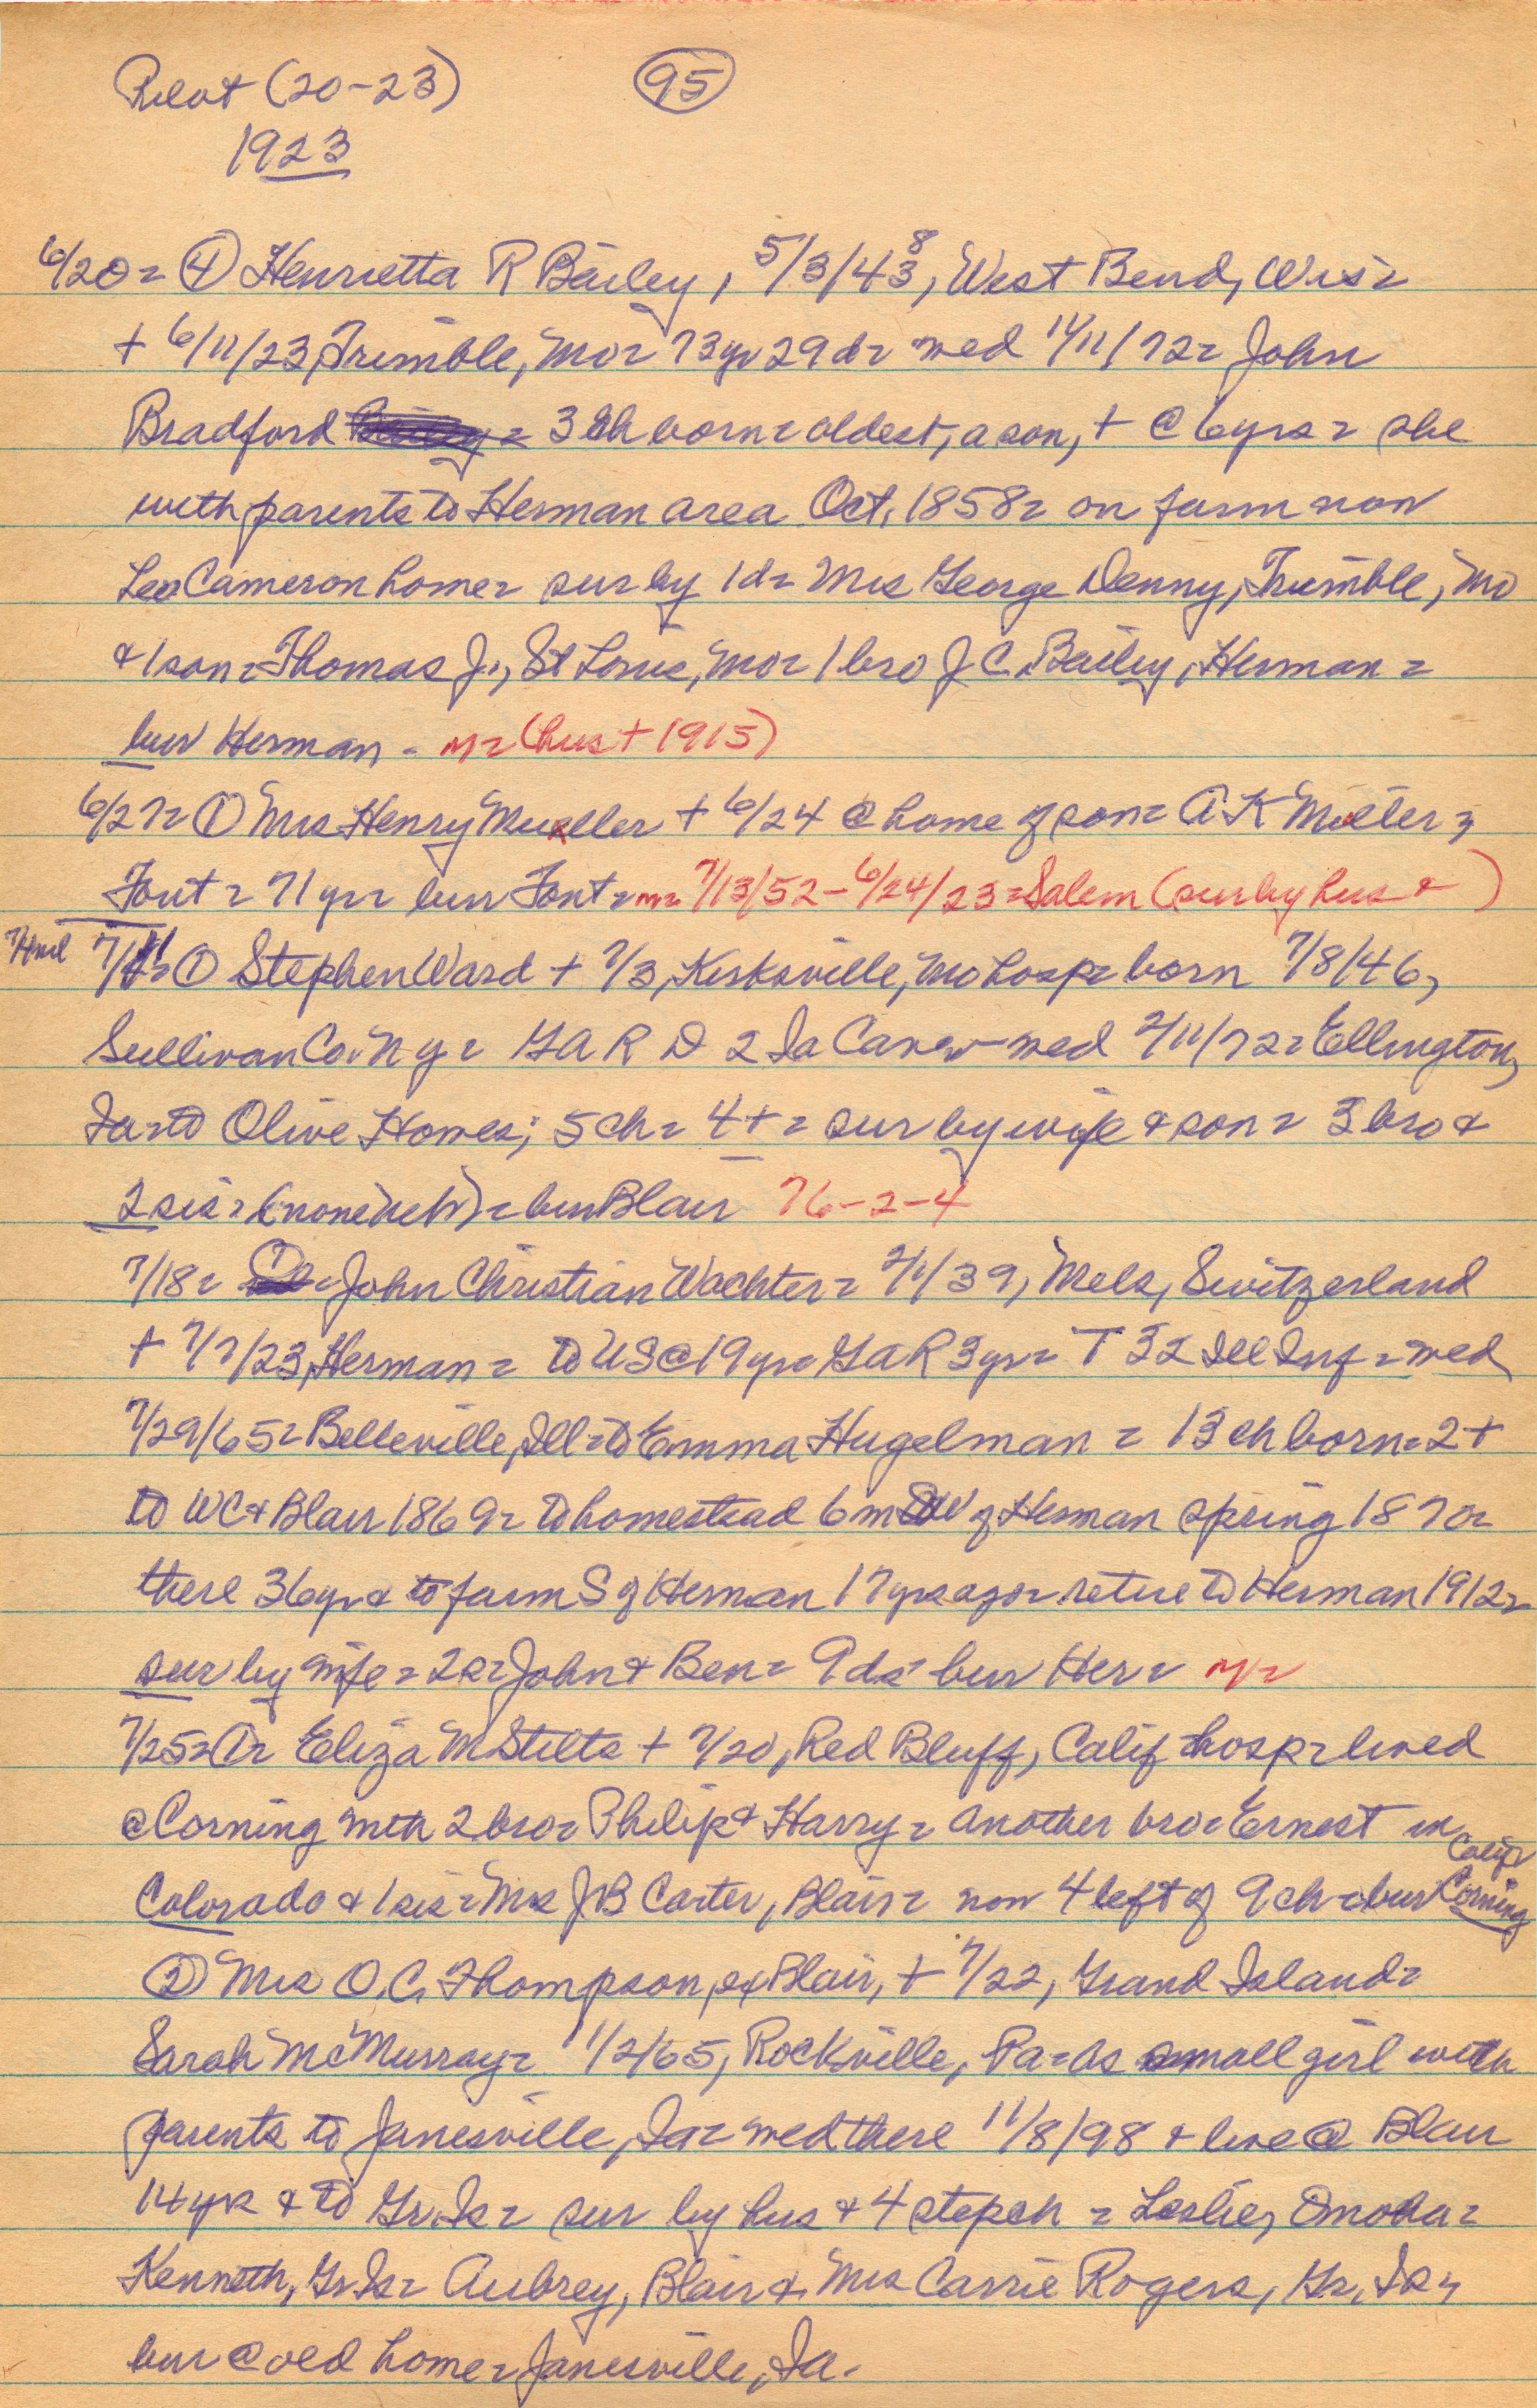 Pilot (20-23) 95
1923
6/20 = ④ Henrietta R Bailey, 5/3/438, West Bend, Wis =
+ 6/11/23, Trimble, Mo = 73 yr 29 d = wed 11/11/72 = John
Bradford = 3 ch born = oldest, a son, + @ 6 yrs = she
with parents to Herman area Oct, 1858 = on farm now
Leo Cameron home = sur by 1 d = Mrs George Denny, Trimble, Mo
& 1 son = Thomas J., St Louis, Mo = 1 bro J C Bailey, Herman =
bur Herman - m = (hus + 1915)
6/27 = ① Mrs Henry Mueller + 6/24 @ home of son = A K Moeller,
Font = 71 yr = bur Font = m = 7/13/52 - 6/24/23 = Salem (sur by hus & )
7/11 = ① Stephen Ward + 7/3, Kirksville, Mo hosp = born 7/8/46,
Sullivan Co. N Y = G A R D 2 Ia Cav = wed 2/11/72 = Ellington,
Ia = to Olive Homes; 5 ch = 4 + = sur by wife & son = 3 bro &
2 sis = (none Neb) = bur Blair 76-2-4
7/18 = ① John Christian Wachter = 2/1/39, Mels, Switzerland
+ 7/7/23, Herman = to US @ 19 yr = G A R 3 yr = T 32 Ill Inf = wed
7/29/65 = Belleville, Ill = to Emma Hugelman = 13 ch born = 2 +
to WC & Blair 1869 = to homestead 6 m SW of Herman spring 1870 =
there 36 yr & to farm S of Herman 17 yrs ago = retire to Herman 1912 =
sur by wife = 2 s = John & Ben = 9 ds = bur Her = m =
7/25 = A = Eliza M Stilts + 7/20, Red Bluff, Calif hosp = lived
@ Corning with 2 bro = Philip & Harry = another bro = Ernest in
Colorado & 1 sis = Mrs J B Carter, Blair = now 4 left of 9 ch = bur Corning Calif
② Mrs O. C. Thompson, ex Blair, + 7/22, Grand Island =
Sarah McMurray = 11/2/65, Rockville, Pa = as small girl with
parents to Janesville, Ia = wed there 11/8/98 & live @ Blair
14 yrs & to Gr. Is = sur by hus & 4 step ch = Leslie, Omaha =
Kenneth, Gr. Is = Aubrey, Blair & Mrs Carrie Rogers, Gr. Is,
bur @ old home = Janesville, Ia.